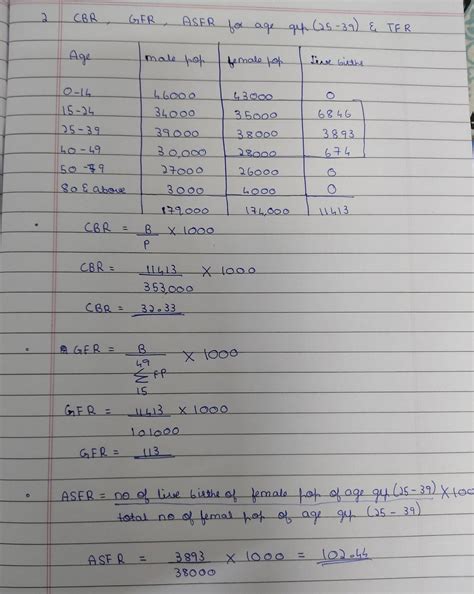 2 CBR, GFR, ASFR for age grp (25-39) & TFR
Age male pop female pop live births
0-14 46000 43000 0
15-24 34000 35000 6846
25-39 39000 38000 3893
40-49 30,000 28000 674
50-79 27000 26000 0
80 & above 3000 4000 0
179000 174,000 11413
CBR = B/P X 1000
CBR = 11413/353,000 X 1000
CBR = 32.33
GFR = B/49 Σ FP 15 X 1000
GFR = 11413/101000 X 1000
GFR = 113
ASFR = no of live births of female pop of age grp (25-39) X 100
total no of femal pop of age grp (25-39)
ASFR = 3893/38000 X 1000 = 102.44